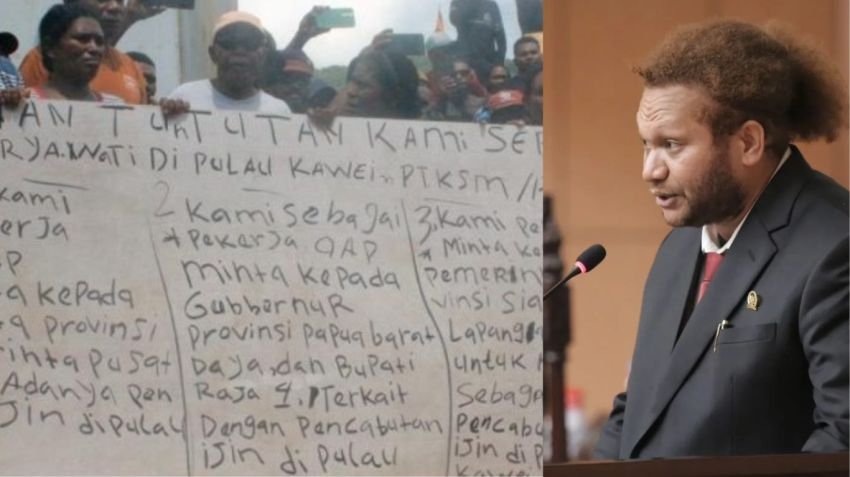 TAN TUNTUTAN KAMI SE
RYAWATI DI PULAU KAWEI PT KSM
Kami
erja
P
a Kepada
a provinsi
rinta pusat
Adanya pen
jin di pulau
2 Kami sebagai
* Pekerja OAP
Minta Kepada
Gubbernur
Provinsi Papua barat
Daya, dan Bupati
Raja 4. Terkait
Dengan Pencabutan
ijin di pulau
3. Kami pe
* Minta Ke
pemerin
vinsi Sia
Lapang
untuk
Sebaga
pencabu
ijin di p
Kawei